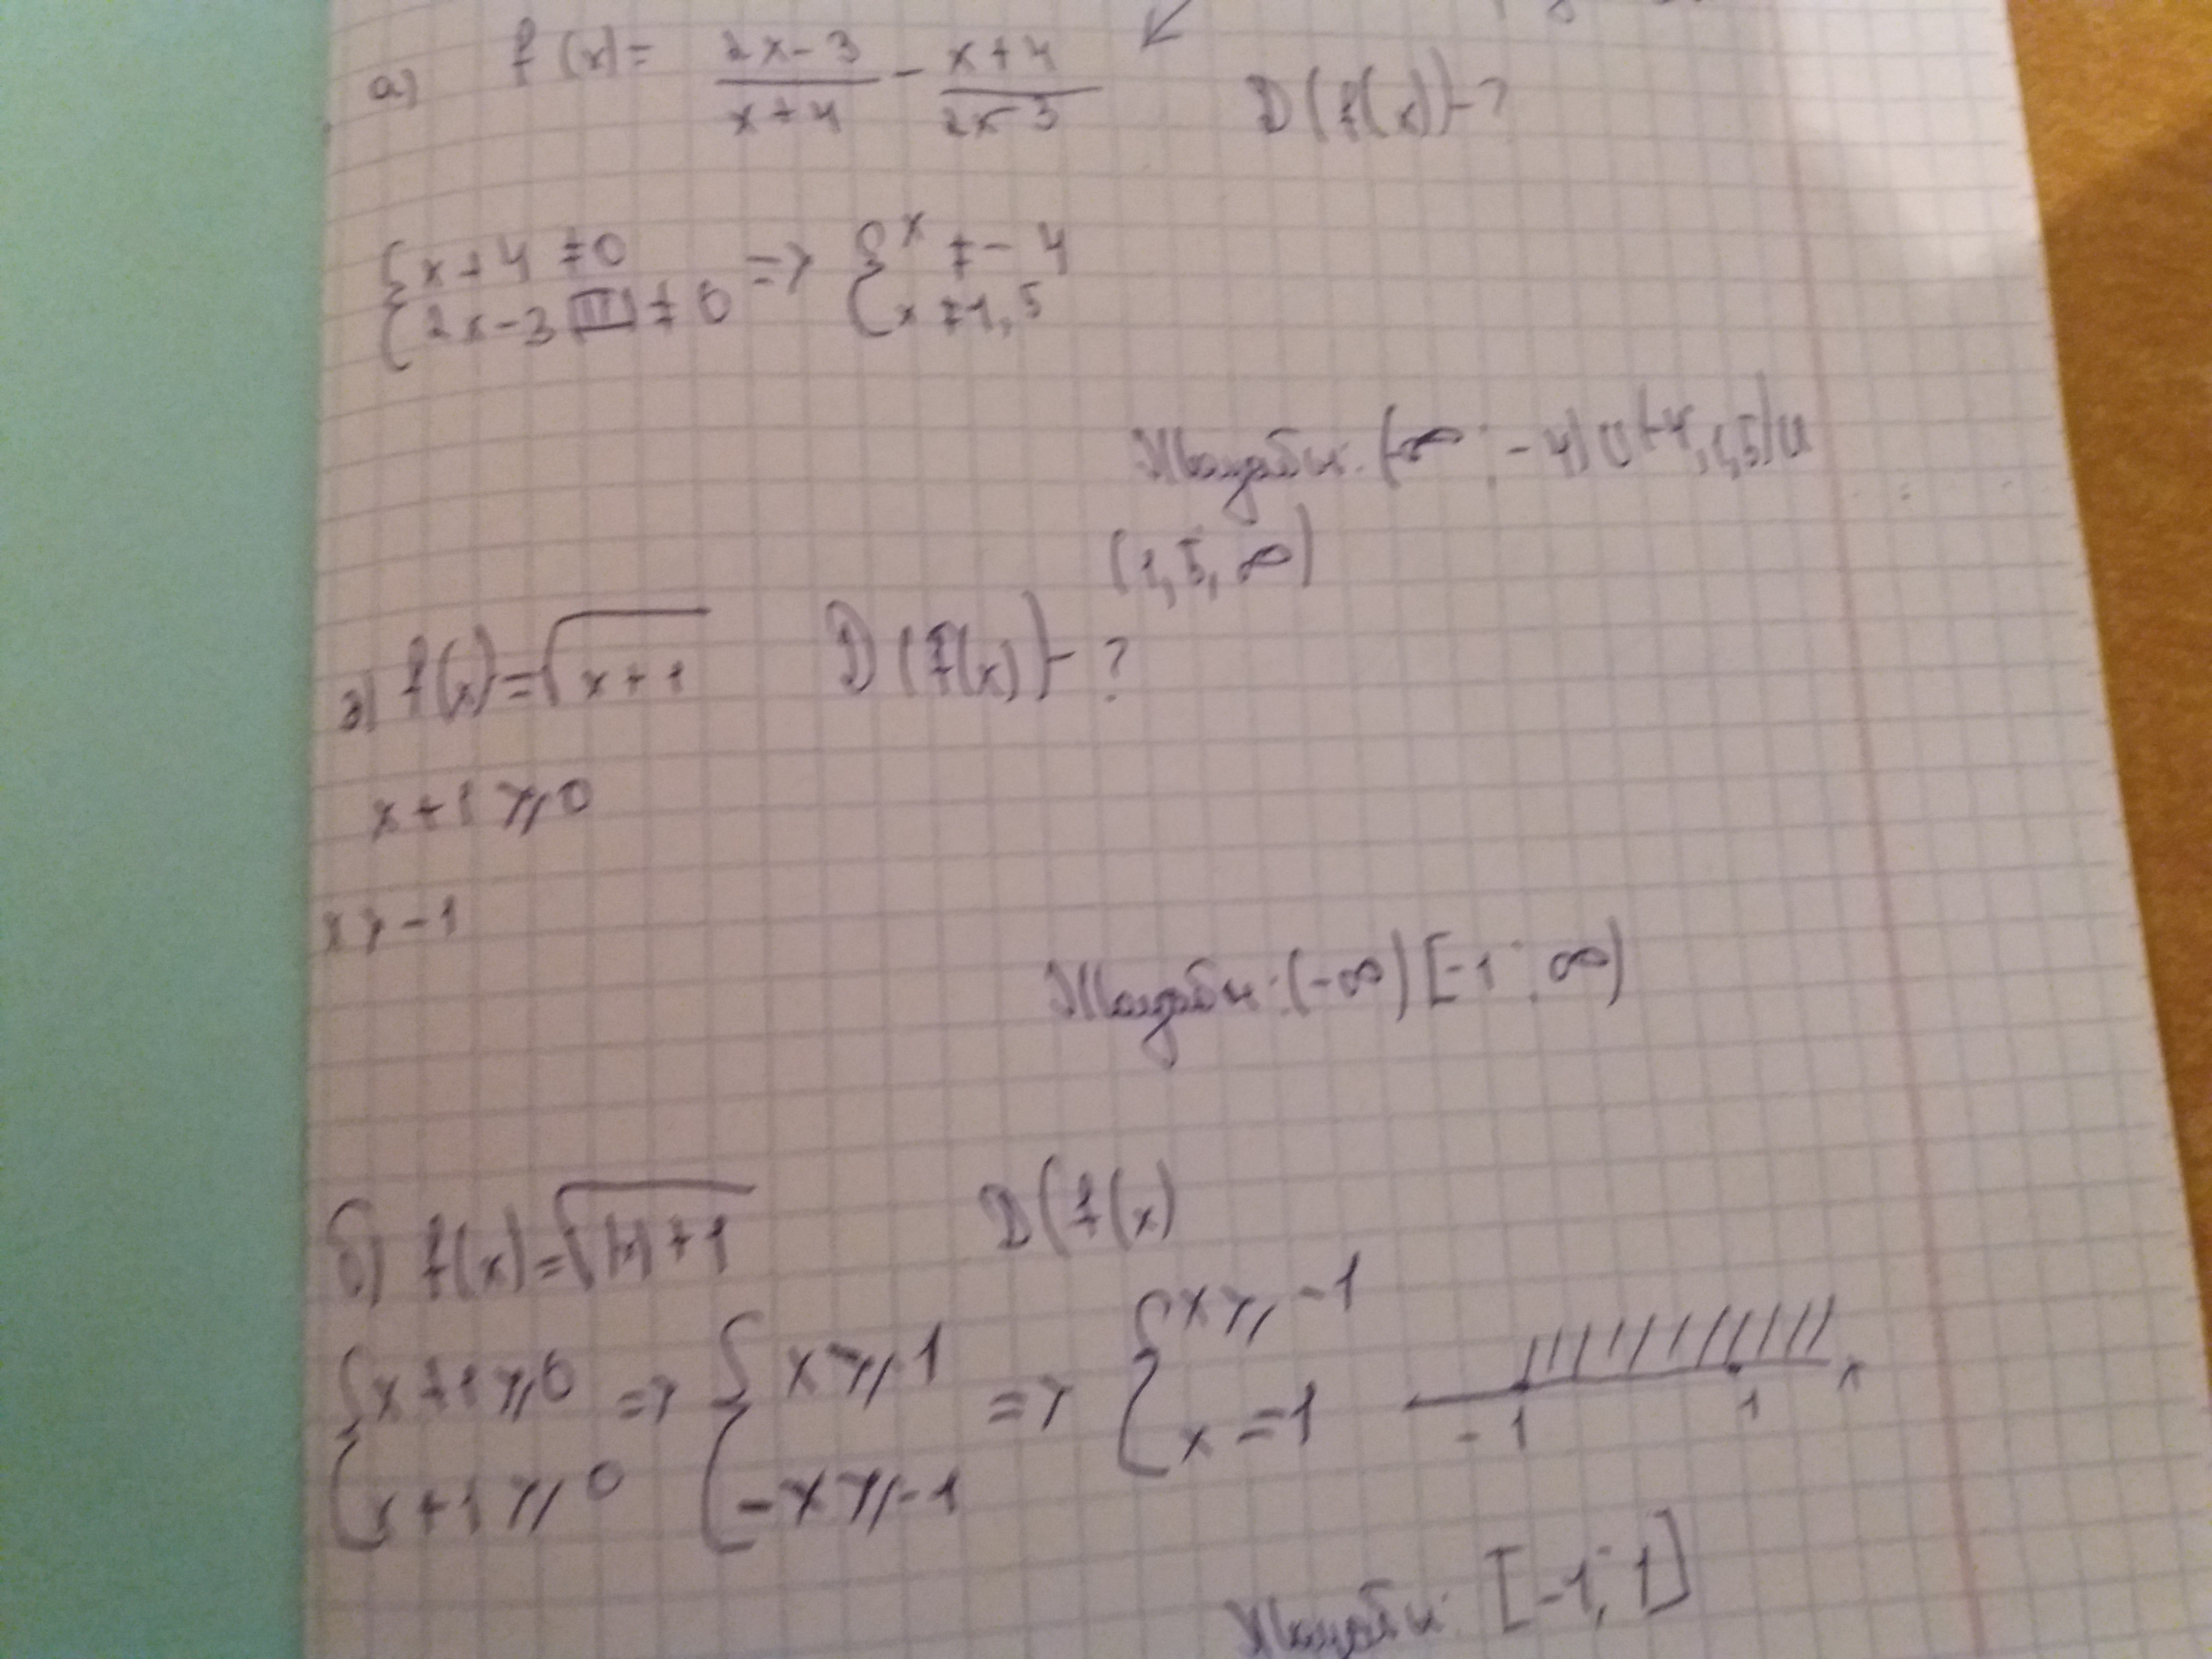 а) f(x) = (2x-3)/(x+4) - (x+4)/(2x-3) D(f(x))-?
{x+4≠0 => {x≠-4
{2x-3≠0 {x≠1,5
Жауабы: (-∞; -4)U(-4, 1,5)U
(1,5, ∞)
а) f(x)=√(x+1) D(f(x))-?
x+1⩾0
x>-1
Жауабы: (-∞) [-1; ∞)
б) f(x)=√(|x|+1) D(f(x)
{x+1⩾0 => {x⩾1 => {x⩾-1
{x+1⩾0 {-x⩾-1 {x=1
-1 1 x
Жауабы: [-1; 1]